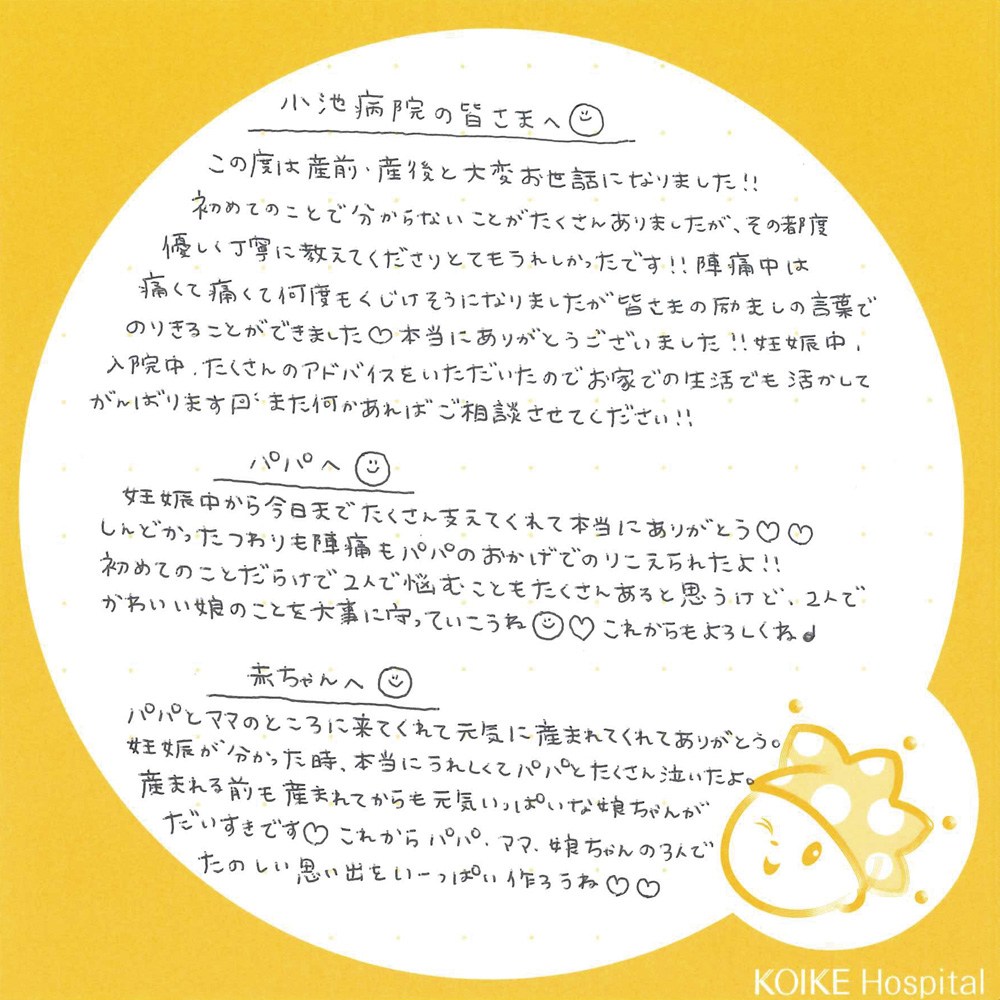 小池病院の皆さまへ☺
この度は産前・産後と大変お世話になりました!!
初めてのことで分からないことがたくさんありましたが、その都度
優しく丁寧に教えてくださりとてもうれしかったです!!陣痛中は
痛くて痛くて何度もくじけそうになりましたが皆さまの励ましの言葉で
のりきることができました♡本当にありがとうございました!!妊娠中、
入院中、たくさんのアドバイスをいただいたのでお家での生活でも活かして
がんばります また何かあればご相談させてください!!
パパへ☺
妊娠中から今日までたくさん支えてくれて本当にありがとう♡♡
しんどかったつわりも陣痛もパパのおかげでのりこえられたよ!!
初めてのことだらけで2人で悩むこともたくさんあると思うけど、2人で
かわいい娘のことを大事に守っていこうね☺♡これからもよろしくね♪
赤ちゃんへ☺
パパとママのところに来てくれて元気に産まれてくれてありがとう。
妊娠が分かった時、本当にうれしくてパパとたくさん泣いたよ。
産まれる前も産まれてからも元気いっぱいな娘ちゃんが
だいすきです♡これからパパ、ママ、娘ちゃんの3人で
たのしい思い出をいーっぱい作ろうね♡♡
KOIKE Hospital